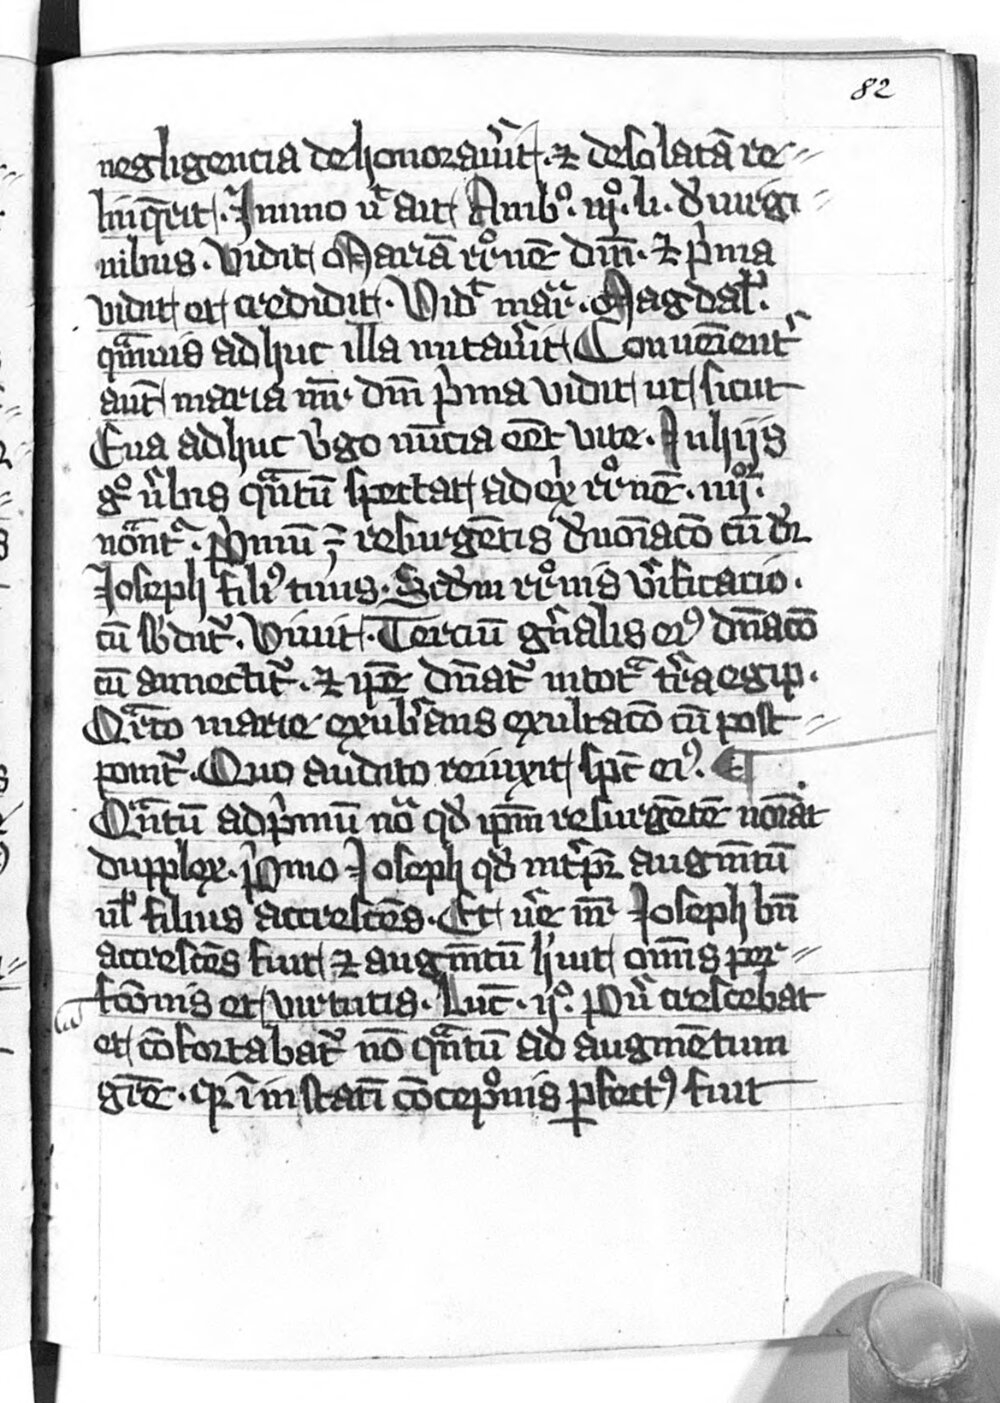 82
negligencia dehonorau̾it · ⁊ desolatā re-
linq̄rēt · Immo vt̾ ait Amb⁰ · iij⁰ · li · de uirgi
nibus · Vidit Mariā rr⁰nē dm̄ · ⁊ p̾ma
vidit et credidit · Vidꝫ mar̾ · Magdal̾ ·
qm̄uis adhuc illa nutau̾it Conuenient̾
aut̄ maria nn̄ dm̄ p̾ma vidit ut sicut
Eua adhuc v̾go nūcia eēt vite · In hijs
g⁰ v̾bis qᵃntū spectat ad rr⁰nē · iiij⁰ʳ ·
noᵃnt̾ · P̾mū resurgētis deno̾iac̄o cū dr̄
Joseph fili⁹ tuus · Scd̄m rr⁰nis v̾ificacio ·
cū sbdit̾ · Viuit · Terciū gn̾alis ei⁹ dn̄ac̄o
cū annectit̾ · ⁊ ip̄e dn̄at̾ in totᵃ tr̾a egip ·
Qᵃrto marie exub̾ans exultac̄o cū post-
ponit̾ · Quo audito reuixit sp̄c ei⁹ ·
Qᵃntū ad p̾mū noᵃ qd̾ ip̄m resurgētē no̾iat
dupplex · P̾mo Joseph qd̾ int̾p̄r augm̄tū
ul̾ filius accrescēs · Et v̾e nr̄ Joseph bn̄
accrescēs fuit ⁊ augm̄tū h̾uit om̄is per-
fcōnis et virtutis · Luc̄ · ij⁰ · Pu̾ crescebat
et cōfortabat̾ nō qᵃntū ad augmētum
gr̄e · qr̄ ī instāti cōcep⁰nis ꝑfect⁹ fuit